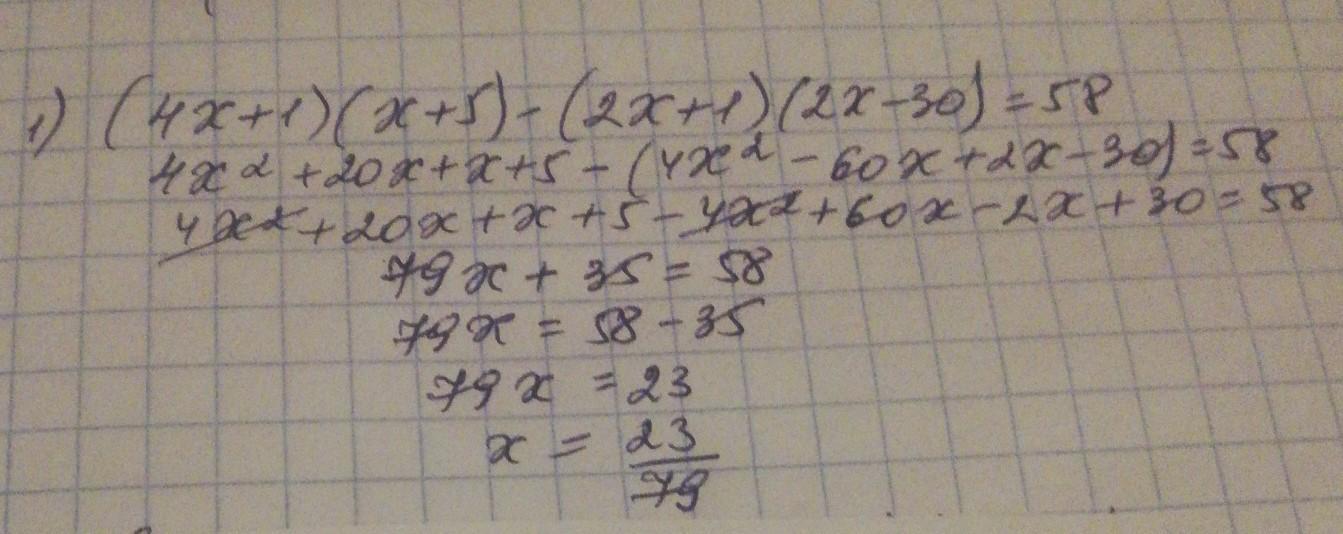 1) (4x+1)(x+5)-(2x+1)(2x-30)=58
4x²+20x+x+5-(4x²-60x+2x-30)=58
4x²+20x+x+5-4x²+60x-2x+30=58
79x+35=58
79x=58-35
79x=23
x=23/79